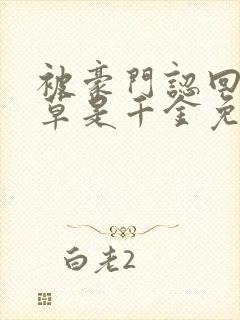 被豪門認回
草是千金免
白老2